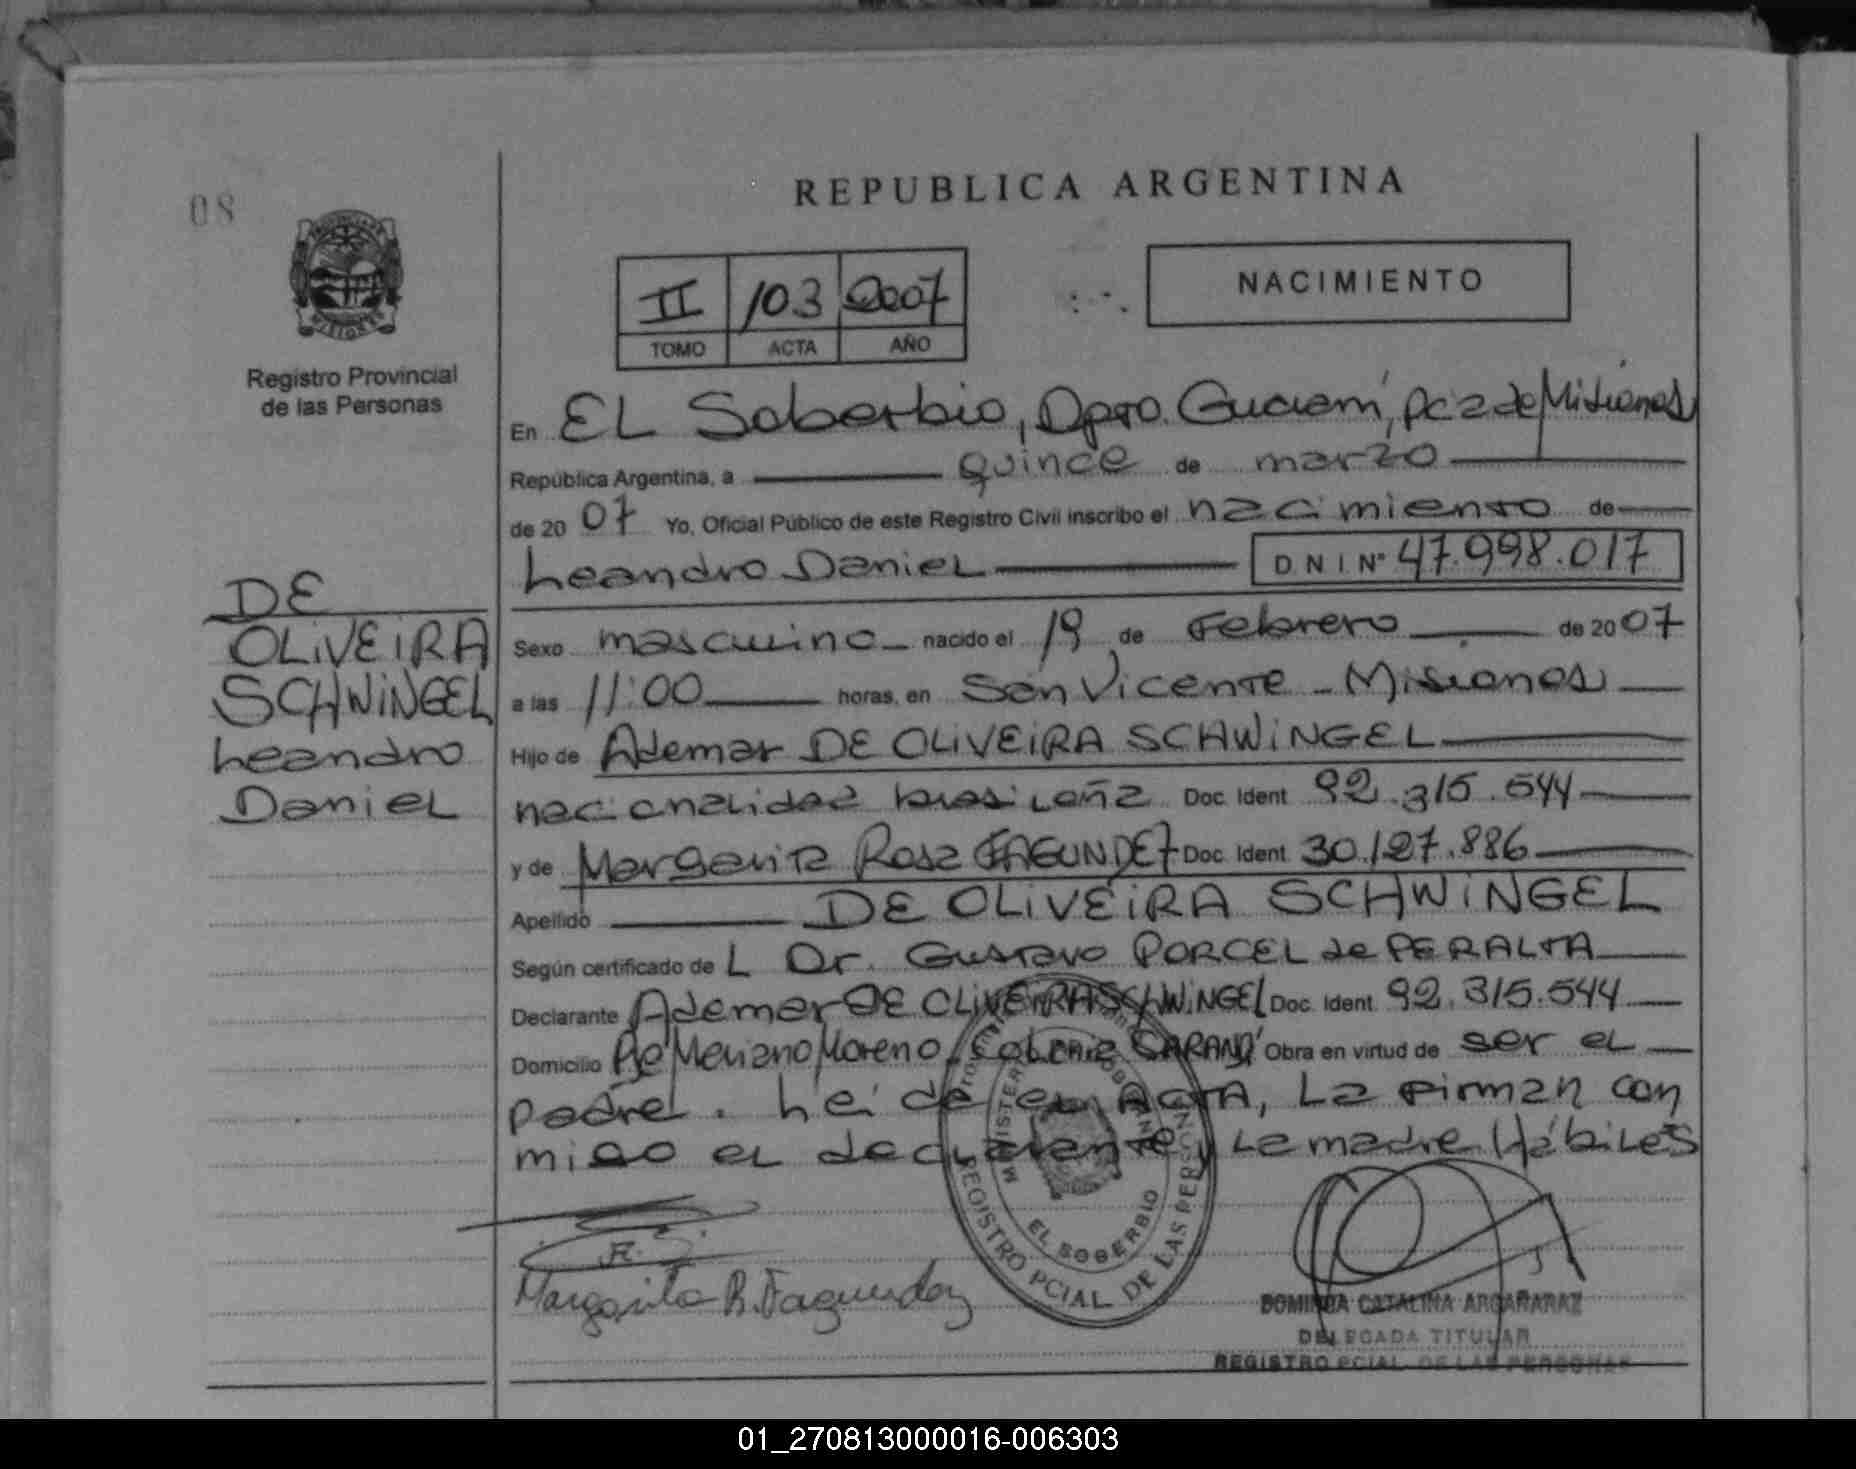 08
REPUBLICA ARGENTINA
PROVINCIA DE
MISIONES
Registro Provincial
de las Personas
II 103 2007
TOMO ACTA AÑO
NACIMIENTO
En EL Soberbio, Dpto. Guaraní, Pcia de Misiones
República Argentina, a quince de marzo
de 2007 Yo, Oficial Público de este Registro Civil inscribo el nacimiento de
Leandro Daniel D N I. Nº 47.998.017
DE
OLIVEIRA
SCHWINGEL
Leandro
Daniel
Sexo masculino nacido el 19 de Febrero de 2007
a las 11:00 horas, en San Vicente - Misiones
Hijo de Ademar DE OLIVEIRA SCHWINGEL
nacionalidad brasileña Doc. Ident 92.315.544
y de Margarita Rosa FAGUNDEZ Doc. Ident 30.127.886
Apellido DE OLIVEIRA SCHWINGEL
Según certificado de L Dr. Gustavo PORCEL de PERALTA
Declarante Ademar DE OLIVEIRA SCHWINGEL Doc. Ident. 92.315.544
Domicilio Pje Mariano Moreno, Colonia SARANDÍ Obra en virtud de ser el
padre. Leída el ACTA, La firman con
migo el declarante y La madre Hábiles
MINISTERIO GOBIERNO
EL SOBERBIO
REGISTRO PCIAL DE LAS PERSONAS
Margarita R. Fagundez
DOMINGA CATALINA ARGAÑARAZ
DELEGADA TITULAR
REGISTRO PCIAL. DE LAS PERSONAS
01_270813000016-006303